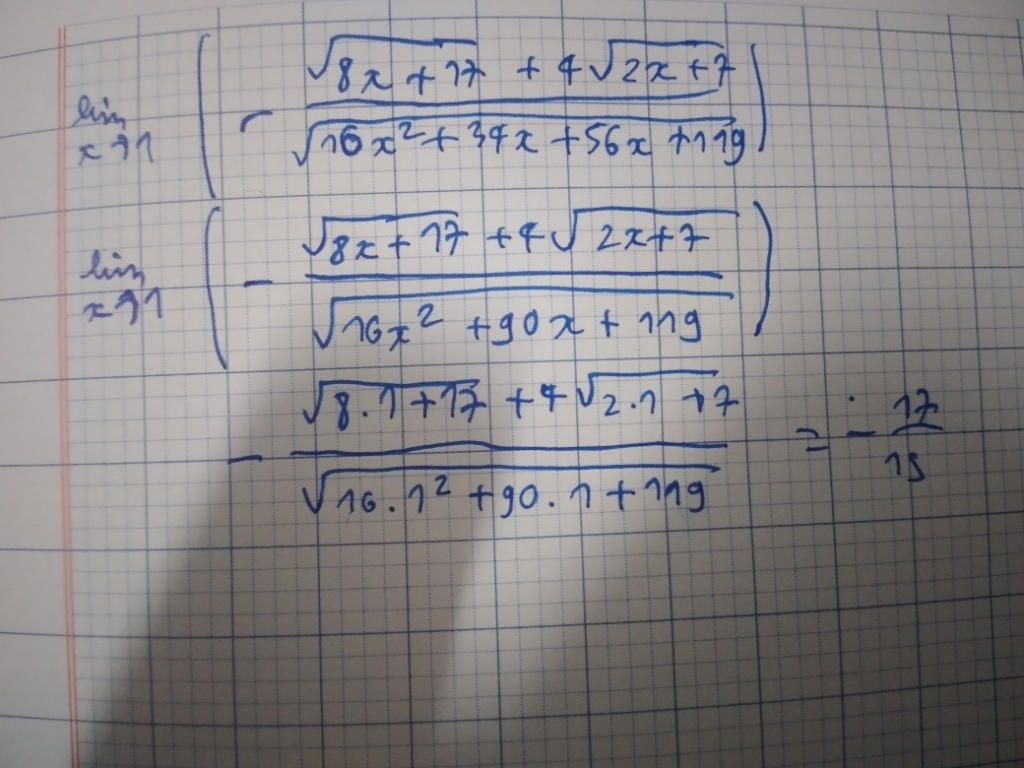 lim x→1 ( - (√(8x + 17) + 4√(2x + 7)) / √(16x² + 34x + 56x + 119) )
lim x→1 ( - (√(8x + 17) + 4√(2x + 7)) / √(16x² + 90x + 119) )
- (√(8·1 + 17) + 4√(2·1 + 7)) / √(16·1² + 90·1 + 119) = - 17/15